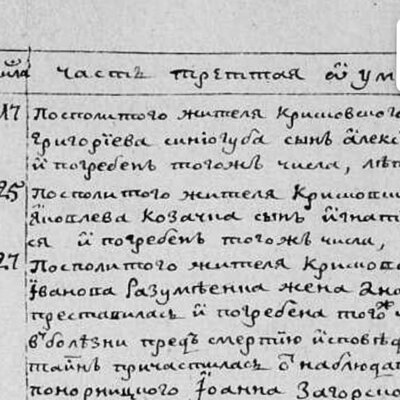 часть третїая ѿ ум
17 Посполитого жителя Кримовского
Григорїева синюгуба сынъ алекс
й погребенъ тогожъ числа, лѣт
25 Посполитого жителя Кримовс
Яковлева Козачка сынъ йгнатї
ся й погребенъ тогожъ числа,
27 Посполитого жителя Кримовс
Їванова Разумѣенка жена
преставилась й погребена того
въ болѣзни предъ смертїю йсповѣ
таинъ причастилась наблюдат
понорницкого Їоанна Загорско